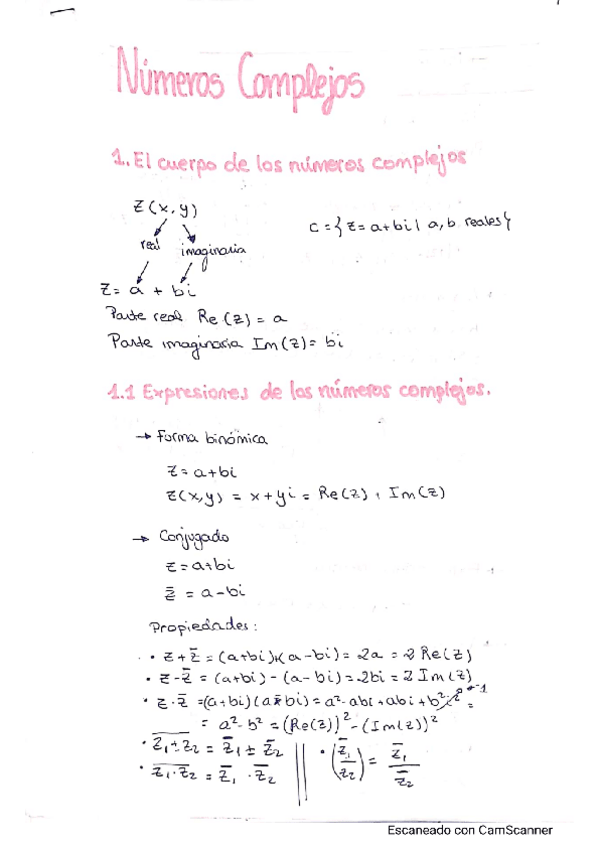 Números Complejos
1. El cuerpo de los números complejos
Z(x,y)
real imaginaria
C = { z = a+bi | a, b reales }
Z = a + bi
Parte real Re(z) = a
Parte imaginaria Im(z) = bi
1.1 Expresiones de los números complejos.
→ Forma binómica
z = a+bi
z(x,y) = x+yi = Re(z), Im(z)
→ Conjugado
z = a+bi
z̄ = a-bi
Propiedades:
• z+z̄ = (a+bi)+(a-bi) = 2a = 2 Re(z)
• z-z̄ = (a+bi) - (a-bi) = 2bi = 2 Im(z)
• z·z̄ = (a+bi)(a-bi) = a²-abi+abi+b²i² -1 =
= a²-b² = (Re(z))² - (Im(z))²
• \overline{z₁±z₂} = z̄₁ ± z̄₂
• \overline{z₁·z₂} = z̄₁ · z̄₂
• (z̄₁/z₂) = z̄₁/z̄₂
Escaneado con CamScanner